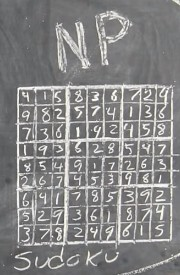 NP
4 1 5 8 3 6 7 2 9
9 8 2 5 7 4 1 3 6
7 3 6 1 9 2 4 5 8
1 9 3 6 2 8 5 4 7
8 5 4 9 1 7 2 6 3
2 6 7 4 5 3 9 8 1
6 4 1 7 8 5 3 9 2
5 2 9 3 6 1 8 7 4
3 7 8 2 4 9 6 1 5
Sudoku